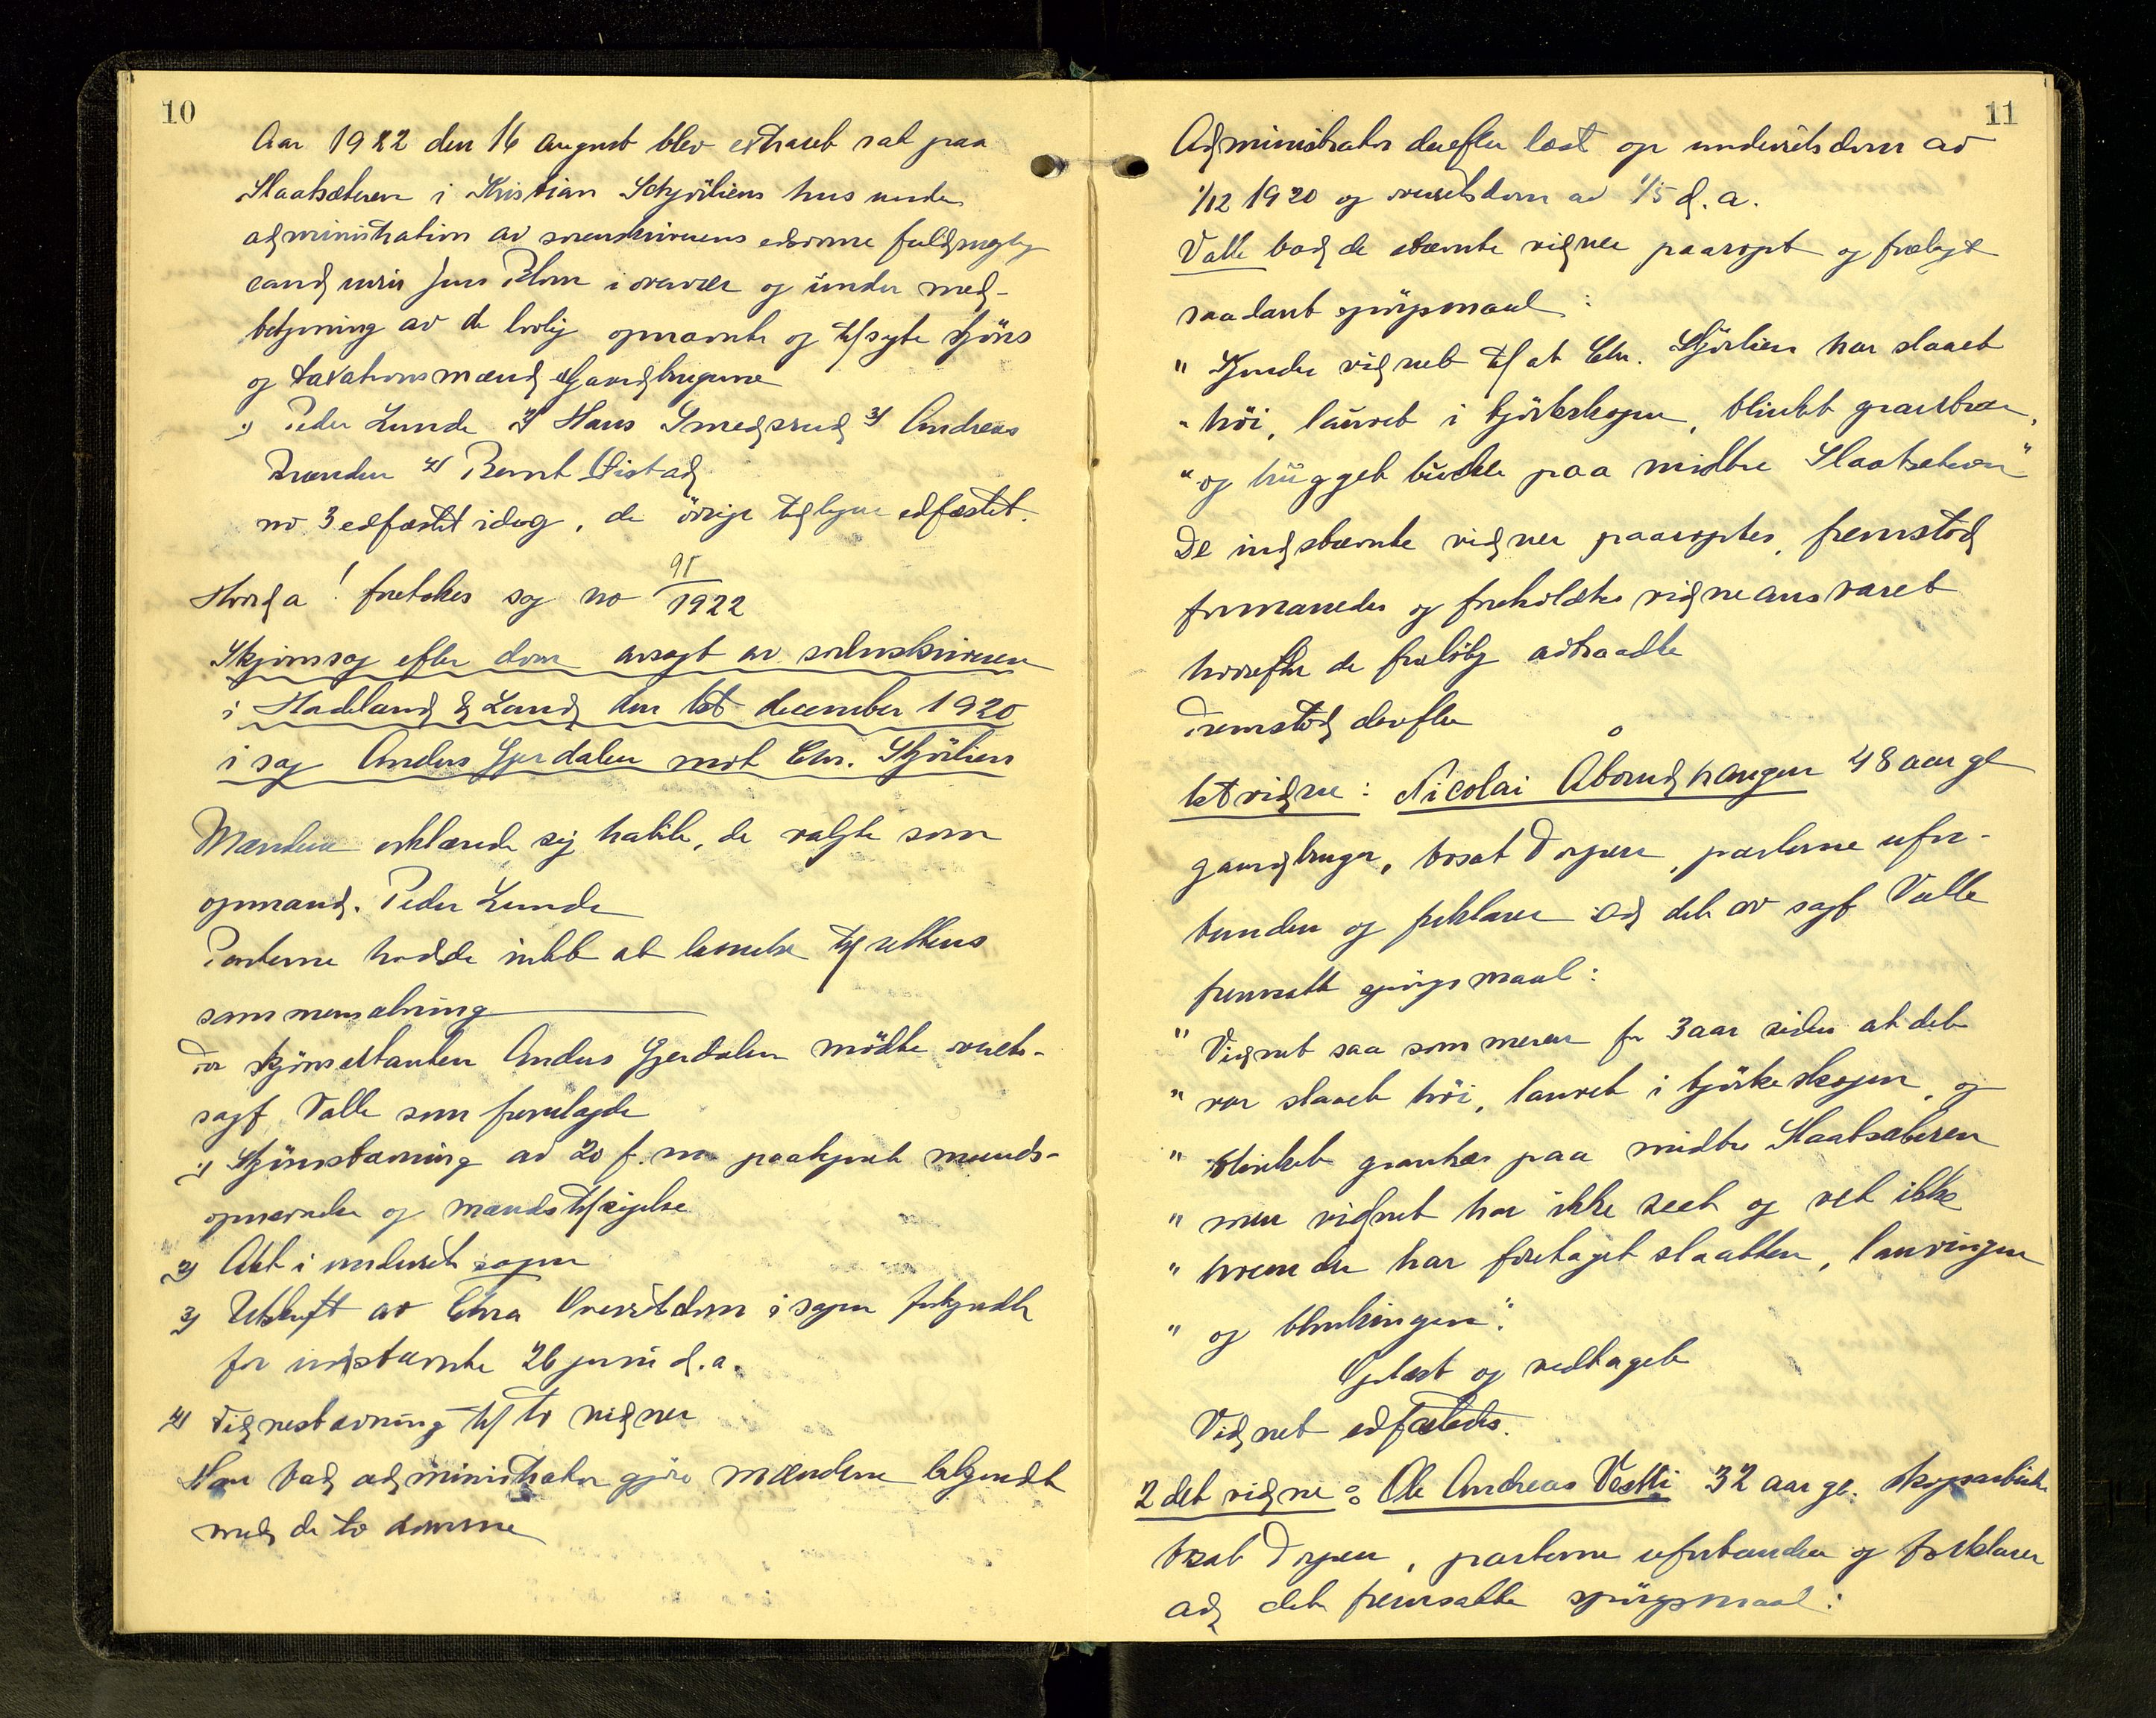 10
Aar 1922 den 16 august blev extraret sat paa
Slaatsæteren i Kristian Schjörliens hus under
administration av sorenskriverens edsvorne fuldmegtig
cand juris Jens Blom i overvær og under med-
betjening av de lovlig opnævnte og tilsagte skjöns
og taxationsmænd gaardbrugerne
1) Peder Lunde 2) Hans Smedsrud 3) Andreas
Trænden 4) Bernt Öistad
no 3 edfæstet idag, de övrige tidligere edfæstet.
Hvorda! foretokes sag no 95/1922
Skjønssag efter dom avsagt av sorenskriveren
i Hadeland & Land den 1st december 1920
i sag Anders Gjerdalen mot Chr. Skjörlien
Mændene erklærede sig habile, de valgte som
opmand. Peder Lunde
Parterne hadde intet at bemerke til rettens
sammensætning
For skjönscitanten Anders Gjerdalen mödte overrets-
sagf. Valle som fremlagde
1) Skjönsstævning av 20 f.m. paategnet mands-
opnævnelse og mændstilsigelse
2) Akt i underretssagen
3) Utskrift av Chra Overretsdom i sagen forkyndt
for indstævnte 26 juni d.a.
4) Vidnestævning til to vidner
Han bad administrator gjöre mændene bekjendt
med de to domme
11
Administrator derefter læst op underretsdom av
1/12 1920 og overretsdom av 1/5 d.a.
Valle bad de stævnte vidner paaropt og forelagt
saadant spörgsmaal:
" Kjender vidnet til at Chr. Skjörlien har slaaet
" höi, lauvet i björkeskogen, blinket grantrær,
" og hugget paa midtre Slaatsæteren"
De indstævnte vidner paaroptes, fremstod
formanedes og foreholdtes vidneansvaret
hvorefter de foreløbig avtraadte
Fremstod derefter
1st vidne: Nicolai Åbondhaugen 48 aar gl
gaardbruger, bosat Torpen, parterne ufor-
bunden og forklarer ad det av sagf Valle
fremsatte spörgsmaal:
" Vidnet saa sommeren for 3 aar siden at det
" var slaaet höi, lauvet i björkeskogen, og
" blinket grantrær paa midtre Slaatsæteren
" men vidnet har ikke seet og vet ikke
" hvem der har foretaget slaatten, lauvingen
" og blinkingen".
Oplæst og vedtaget
Vidnet edfæstedes.
2det vidne: Ole Andreas Vestli 32 aar gl. skogsarbeider
bosat Torpen, parterne uforbunden og forklarer
ad det fremsatte spörgsmaal: